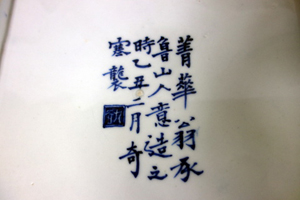 菁華翁承
魯山人意造之
時乙丑二月奇
寒襲